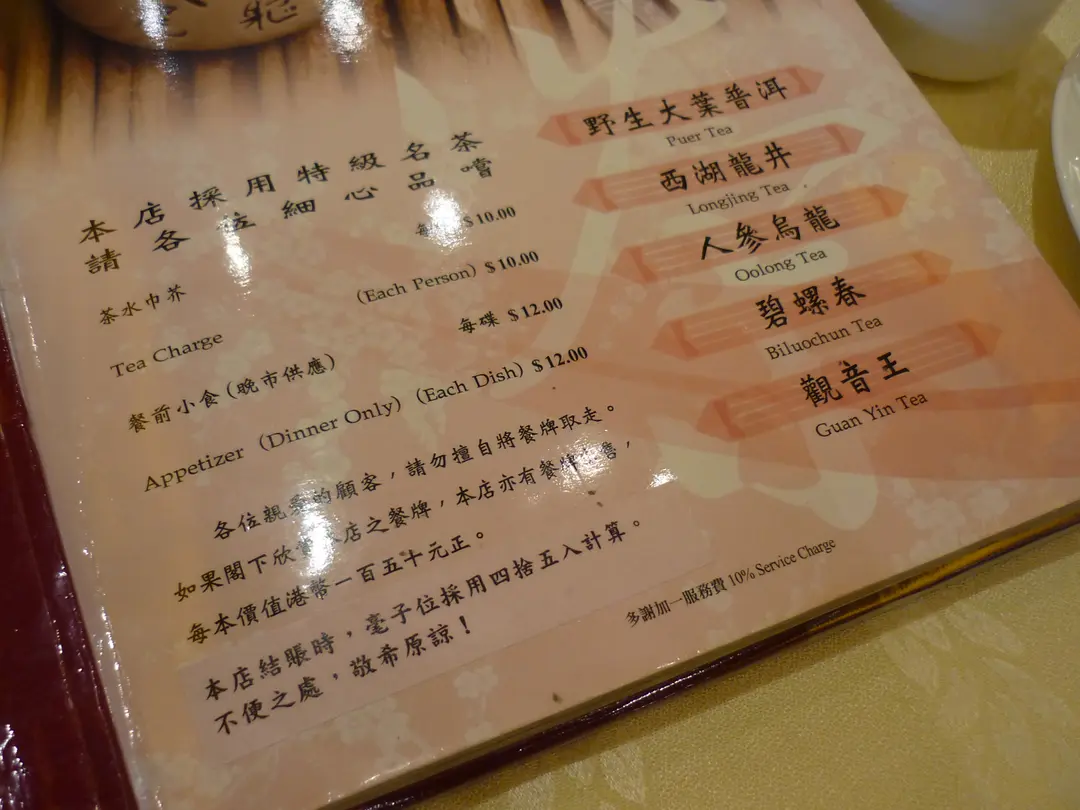 本店採用特級名茶
請各位細心品嚐
茶水巾芥 $10.00
Tea Charge (Each Person) $10.00
餐前小食(晚市供應) 每碟 $12.00
Appetizer (Dinner Only) (Each Dish) $12.00
各位親愛的顧客，請勿擅自將餐牌取走。
如果閣下欣賞本店之餐牌，本店亦有餐牌出售，
每本價值港幣一百五十元正。
本店結賬時，毫子位採用四捨五入計算。
不便之處，敬希原諒！
野生大葉普洱
Puer Tea
西湖龍井
Longjing Tea
人參烏龍
Oolong Tea
碧螺春
Biluochun Tea
觀音王
Guan Yin Tea
多謝加一服務費 10% Service Charge